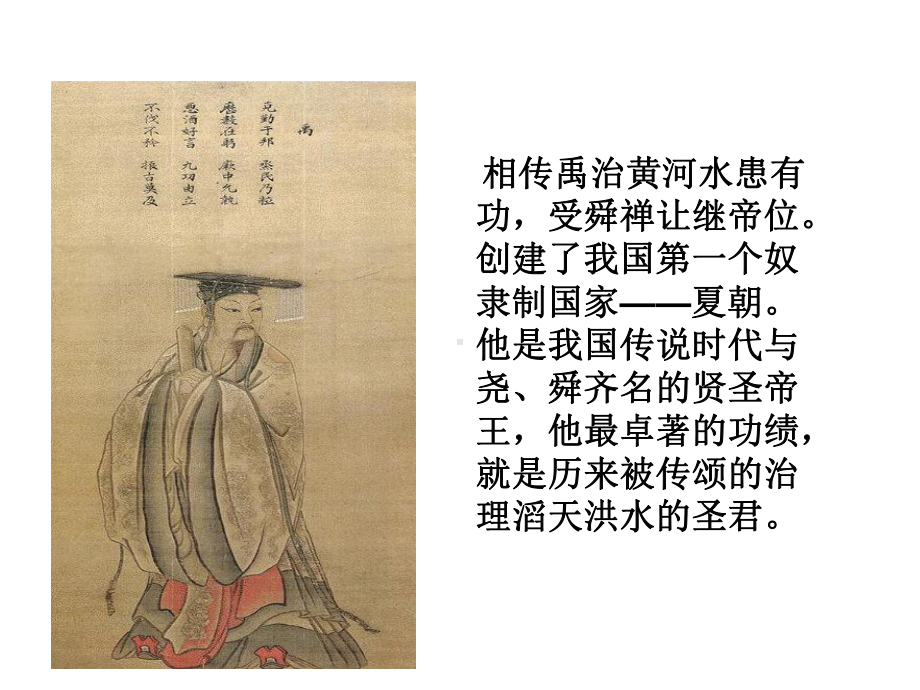 禹
克勤于邦 烝民乃粒
厯數在躬 厥中允執
惡酒好言 九功由立
不伐不矜 振古莫及
相传禹治黄河水患有
功，受舜禅让继帝位。
创建了我国第一个奴
隶制国家——夏朝。
他是我国传说时代与
尧、舜齐名的贤圣帝
王，他最卓著的功绩，
就是历来被传颂的治
理滔天洪水的圣君。